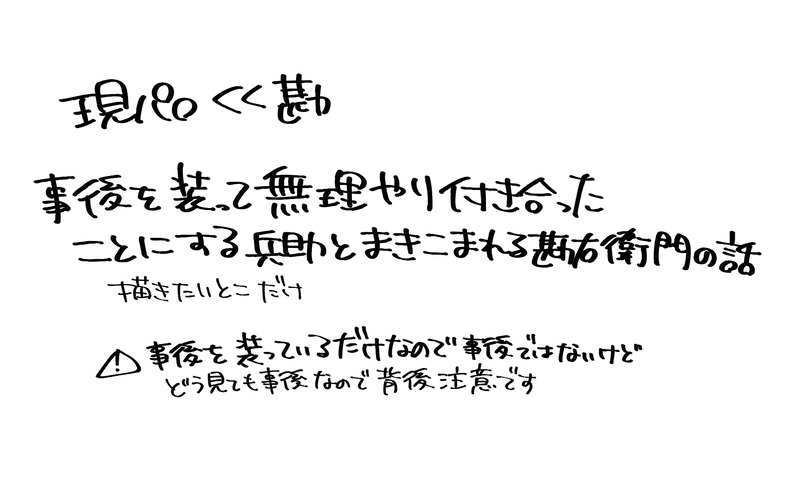 現パロくく勘
事後を装って無理やり付き合った
ことにする兵助とまきこまれる勘右衛門の話
描きたいとこだけ
⚠ 事後を装っているだけなので事後ではないけど
どう見ても事後なので背後注意です